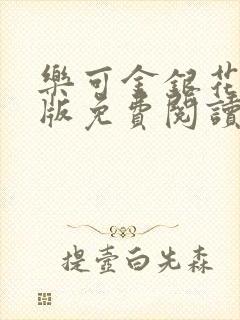 樂可金銀花
版免費閱讀
提壺白先森